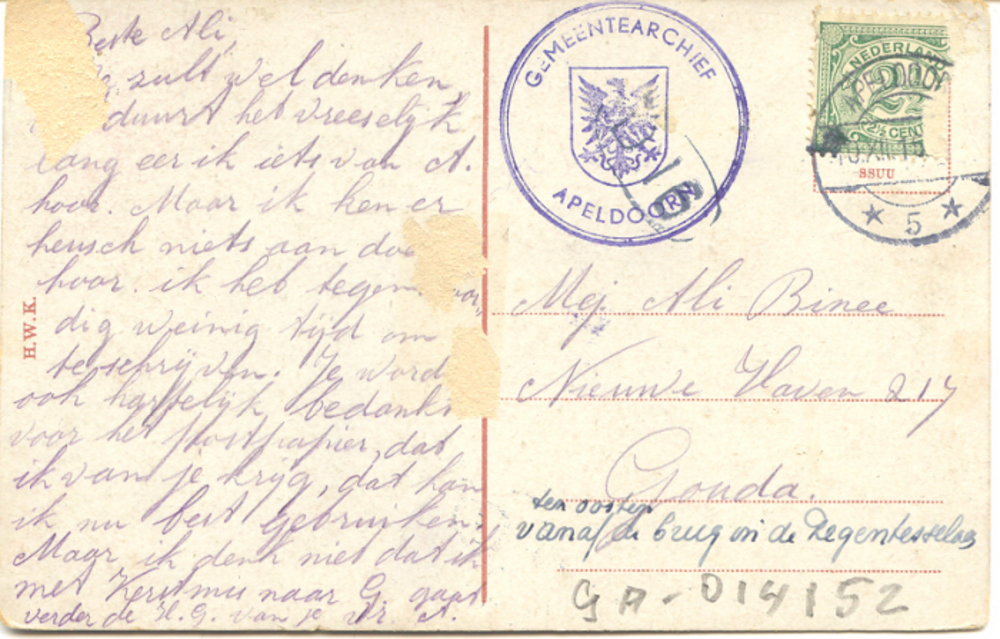 Beste Ali,
zult wel denken,
duurt het vreeselijk
lang eer ik iets van A.
hoor. Maar ik ken er
heusch niets aan doe
hoor. ik heb tegen woor„
dig weinig tijd om
te schrijven. Je word
ook hartelijk bedankt
voor het postpapier, dat
ik van je krijg, dat kan
ik nu best gebruiken.
Maar ik denk niet dat ik
met Kerstmis naar G. gaat
verder de H. G. van je vr. A.
H.W.K.
GEMEENTEARCHIEF
APELDOORN
NEDERLAND
2½
2½ CENT
APELDOORN
5
SSUU
Mej Ali Binee
Nieuwe Haven 217
Gouda.
ten oosten
vanaf de brug in de Regentesselaan
GA-014152